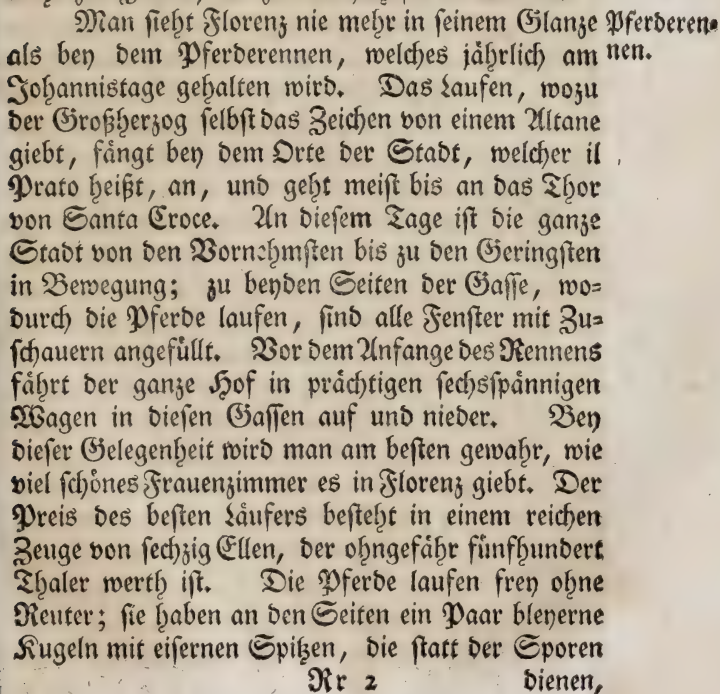 Man sieht Florenz nie mehr in seinem Glanze
als bey dem Pferderennen, welches jährlich am
Johannistage gehalten wird. Das Laufen, wozu
der Großherzog selbst das Zeichen von einem Altane
giebt, fängt bey dem Orte der Stadt, welcher il
Prato heißt, an, und geht meist bis an das Thor
von Santa Croce. An diesem Tage ist die ganze
Stadt von den Vornehmsten bis zu den Geringsten
in Bewegung; zu beyden Seiten der Gasse, wo=
durch die Pferde laufen, sind alle Fenster mit Zu=
schauern angefüllt. Vor dem Anfange des Rennens
fährt der ganze Hof in prächtigen sechsspännigen
Wagen in diesen Gassen auf und nieder. Bey
dieser Gelegenheit wird man am besten gewahr, wie
viel schönes Frauenzimmer es in Florenz giebt. Der
Preis des besten Läufers besteht in einem reichen
Zeuge von sechzig Ellen, der ohngefähr fünfhundert
Thaler werth ist. Die Pferde laufen frey ohne
Reuter; sie haben an den Seiten ein Paar bleyerne
Kugeln mit eisernen Spitzen, die statt der Sporen
Rr 2 dienen,
Pferderen=
nen.